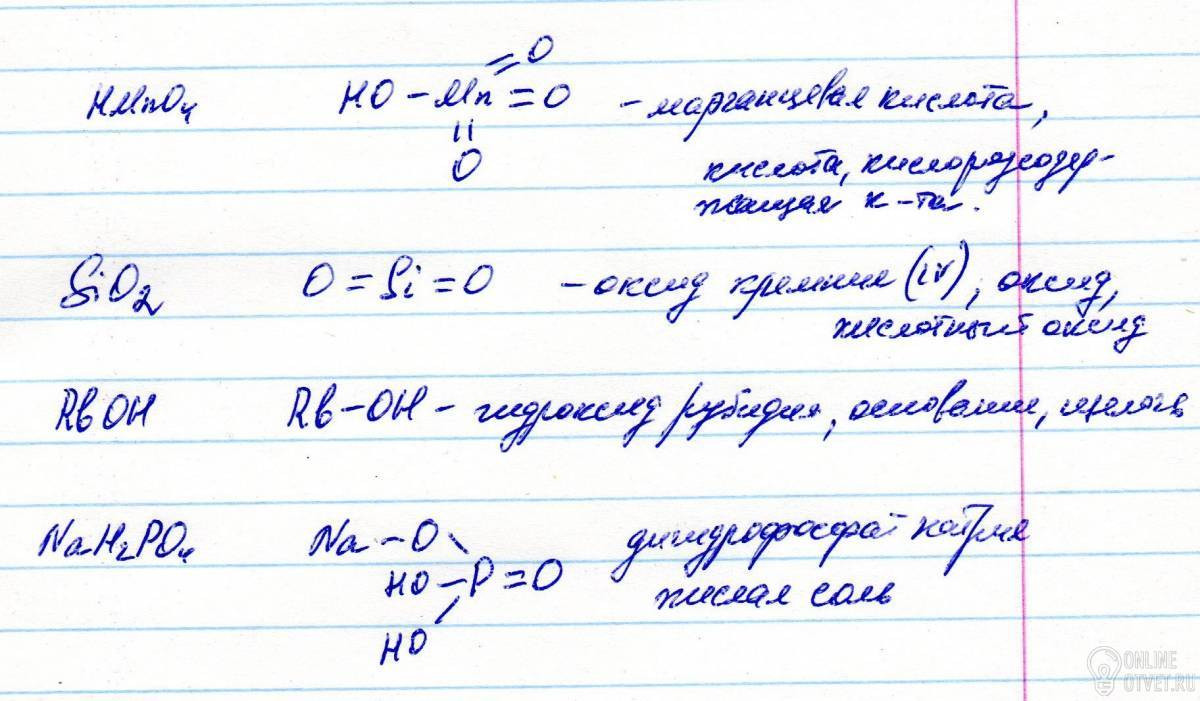 =O
HMnO₄ HO – Mn = O – марганцевая кислота,
||
O
кислота, кислородсодер-
жащая к-та.
SiO₂ O = Si = O – оксид кремния (IV), оксид,
кислотный оксид
RbOH Rb – OH – гидроксид рубидия, основание, щелочь
NaH₂PO₄ Na – O \ дигидрофосфат натрия
HO – P = O кислая соль
HO /
ONLINE
OTVET.RU